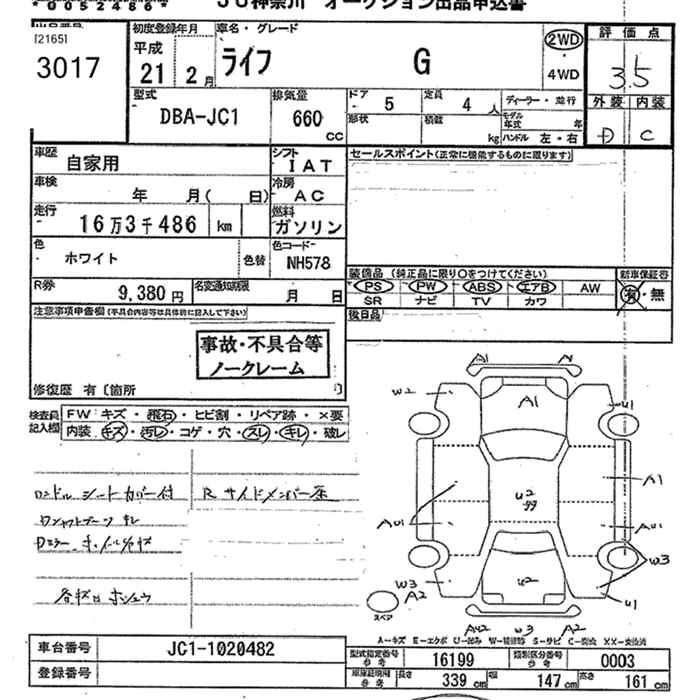 *00524864*
JU神奈川 オークション出品申込書
出品番号
[2165]
3017
初度登録年月
平成
21 2月
車名・グレード
ライフ G
2WD
・
4WD
評価点
3.5
外装 内装
D C
型式
DBA-JC1
排気量
660 CC
ドア
5
定員
4 人
ディーラー・並行
形状
積載
kg
モデル年式 年
ハンドル 左・右
車歴
自家用
シフト
IAT
セールスポイント(正常に機能するものに限ります)
車検
年 月( 日)
冷房
AC
走行
16万3千486 km
燃料
ガソリン
色
ホワイト
色替
色コード
NH578
R券
9,380円
名変通知期限
月 日
装備品 (純正品に限り○をつけてください)
新車保証書
PS PW ABS エアB AW
SR ナビ TV カワ
有・無
後日品
注意事項申告欄(不具合内容等は具体的に記入して下さい)
事故・不具合等
ノークレーム
修復歴 有〔箇所 〕
検査員記入欄
FW キズ・飛石・ヒビ割・リペア跡・×要
内装 キズ・汚レ・コゲ・穴・スレ・キレ・破レ
シートカバー付
R サイドメンバー
A1
A1
W2
U1
A1
AU1
U2
AU1
W3
W3
A2
U2
U1
スペア
AU2 W3 A2
A-キズ E-エクボ U-凹み W-補修跡 S-サビ C-腐食 XX-交換済
車台番号
JC1-1020482
登録番号
型式指定番号
参考
16199
類別区分番号
参考
0003
車庫証明用
参考
長さ
339 cm
幅
147 cm
高さ
161 cm